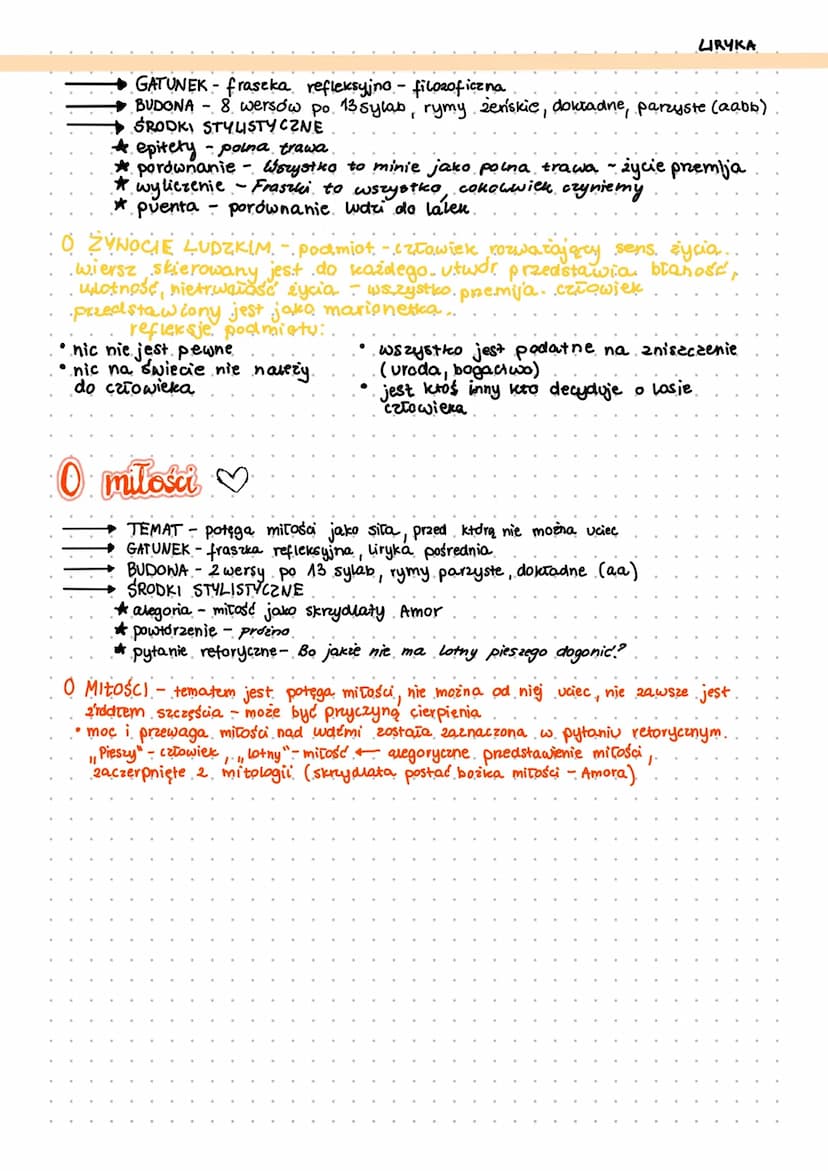 LIRYKA
→ GATUNEK - fraszka refleksyjno - filozoficzna
→ BUDOWA - 8 wersów po 13 sylab, rymy żeńskie, dokładne, parzyste (aabb)
→ ŚRODKI STYLISTYCZNE
★ epitety - polna trawa
★ porównanie - Wszystko to minie jako polna trawa - życie przemija
★ wyliczenie - Fraszki to wszystko, cokolwiek czyniemy
★ puenta - porównanie ludzi do lalek
O ŻYWOCIE LUDZKIM - podmiot - człowiek rozważający sens życia.
wiersz skierowany jest do każdego. utwór przedstawia błahość,
ulotność, nietrwałość życia - wszystko przemija. człowiek
przedstawiony jest jako marionetka.
refleksje podmiotu:
• nic nie jest pewne
• nic na świecie nie należy
do człowieka
• wszystko jest podatne na zniszczenie
(uroda, bogactwo)
• jest ktoś inny kto decyduje o losie
człowieka
O miłości ♡
→ TEMAT - potęga miłości jako siła, przed którą nie można uciec
→ GATUNEK - fraszka refleksyjna, liryka pośrednia
→ BUDOWA - 2 wersy po 13 sylab, rymy parzyste, dokładne (aa)
→ ŚRODKI STYLISTYCZNE
★ alegoria - miłość jako skrzydlaty Amor
★ powtórzenie - próżno
★ pytanie retoryczne - Bo jakże nie ma lotny pieszego dogonić?
O MIŁOŚCI - tematem jest potęga miłości, nie można od niej uciec, nie zawsze jest
źródłem szczęścia - może być przyczyną cierpienia
• moc i przewaga miłości nad ludźmi została zaznaczona w pytaniu retorycznym.
„Pieszy" - człowiek, „lotny" - miłość ← alegoryczne przedstawienie miłości,
zaczerpnięte z mitologii (skrzydlata postać bożka miłości - Amora)